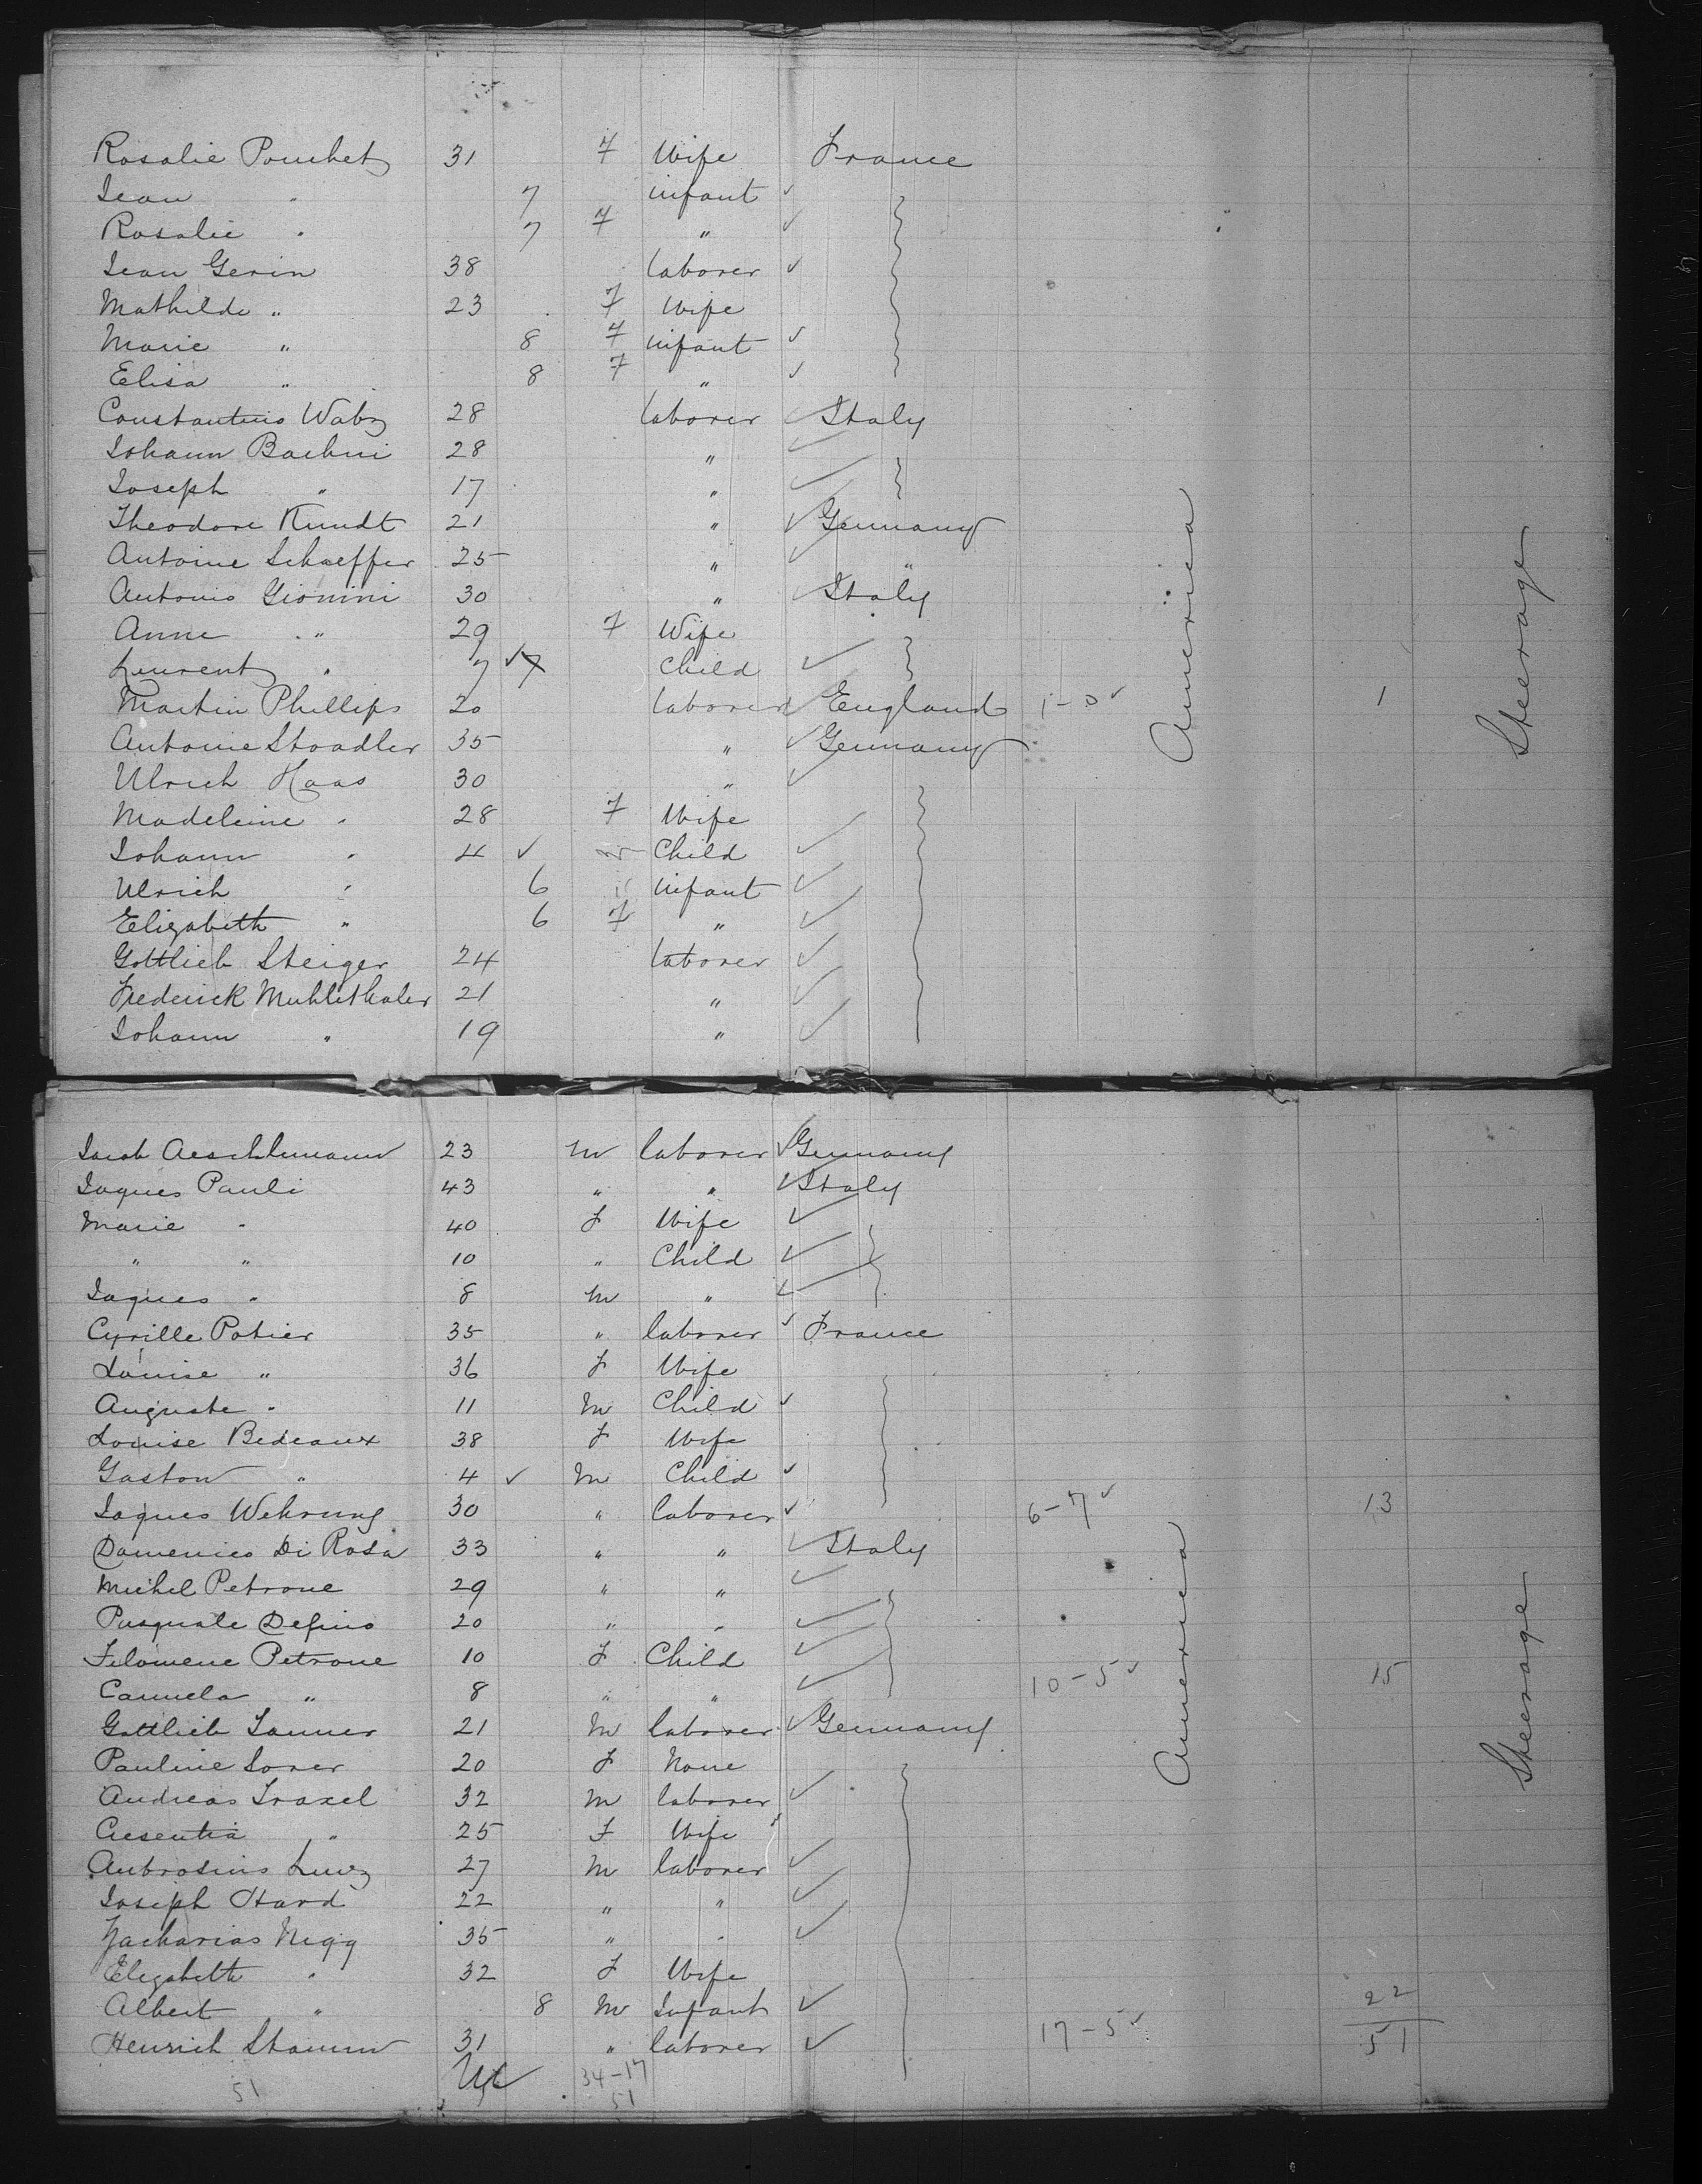 Rosalie Pouchet 31 F Wife France
Jean " 7 infant
Rosalie " 7 F "
Jean Gerin 38 laborer
Mathilde " 23 F Wife
Marie " 8 F infant
Elisa " 8 F "
Constantino Wabz 28 laborer Italy
Johann Bachini 28 "
Joseph " 17 "
Theodore Kundt 21 " Germany
Antoine Schaeffer 25 "
Antonio Gionini 30 " Italy
Anne " 29 F Wife
Laurent " 7 Child
Martin Phillips 20 laborer England 1-0 1
Antoine Stoadler 35 " Germany
Ulrich Haas 30 "
Madeleine " 28 F Wife
Johann " 4 Child
Ulrich " 6 infant
Elizabeth " 6 F "
Gottlieb Steiger 24 laborer
Frederick Muhlethaler 21 "
Johann " 19 "
America
Steerage
Jacob Aeschlemann 23 m laborer Germany
Jaques Pauli 43 " " Italy
Marie " 40 F Wife
" " 10 " Child
Jaques " 8 m "
Cyrille Potier 35 " laborer France
Louise " 36 F Wife
Auguste " 11 m Child
Louise Bedeaux 38 F Wife
Gaston " 4 m Child
Jaques Wehrung 30 " laborer 6-7 13
Domenico Di Rosa 33 " " Italy
Michel Petrone 29 " "
Pasquale Defino 20 " "
Filomene Petrone 10 F Child
Carmela " 8 " " 10-5 15
Gottlieb Tanner 21 m laborer Germany
Pauline Sorer 20 F None
Andreas Traxel 32 m laborer
Cresentia " 25 F Wife
Ambrosius Lurz 27 m laborer
Joseph Hard 22 " "
Zacharias Nigg 35 " "
Elizabeth " 32 F Wife
Albert " 8 m Infant 22
Henrich Stamm 31 " laborer 17-5 51
34-17
51 51
America
Steerage